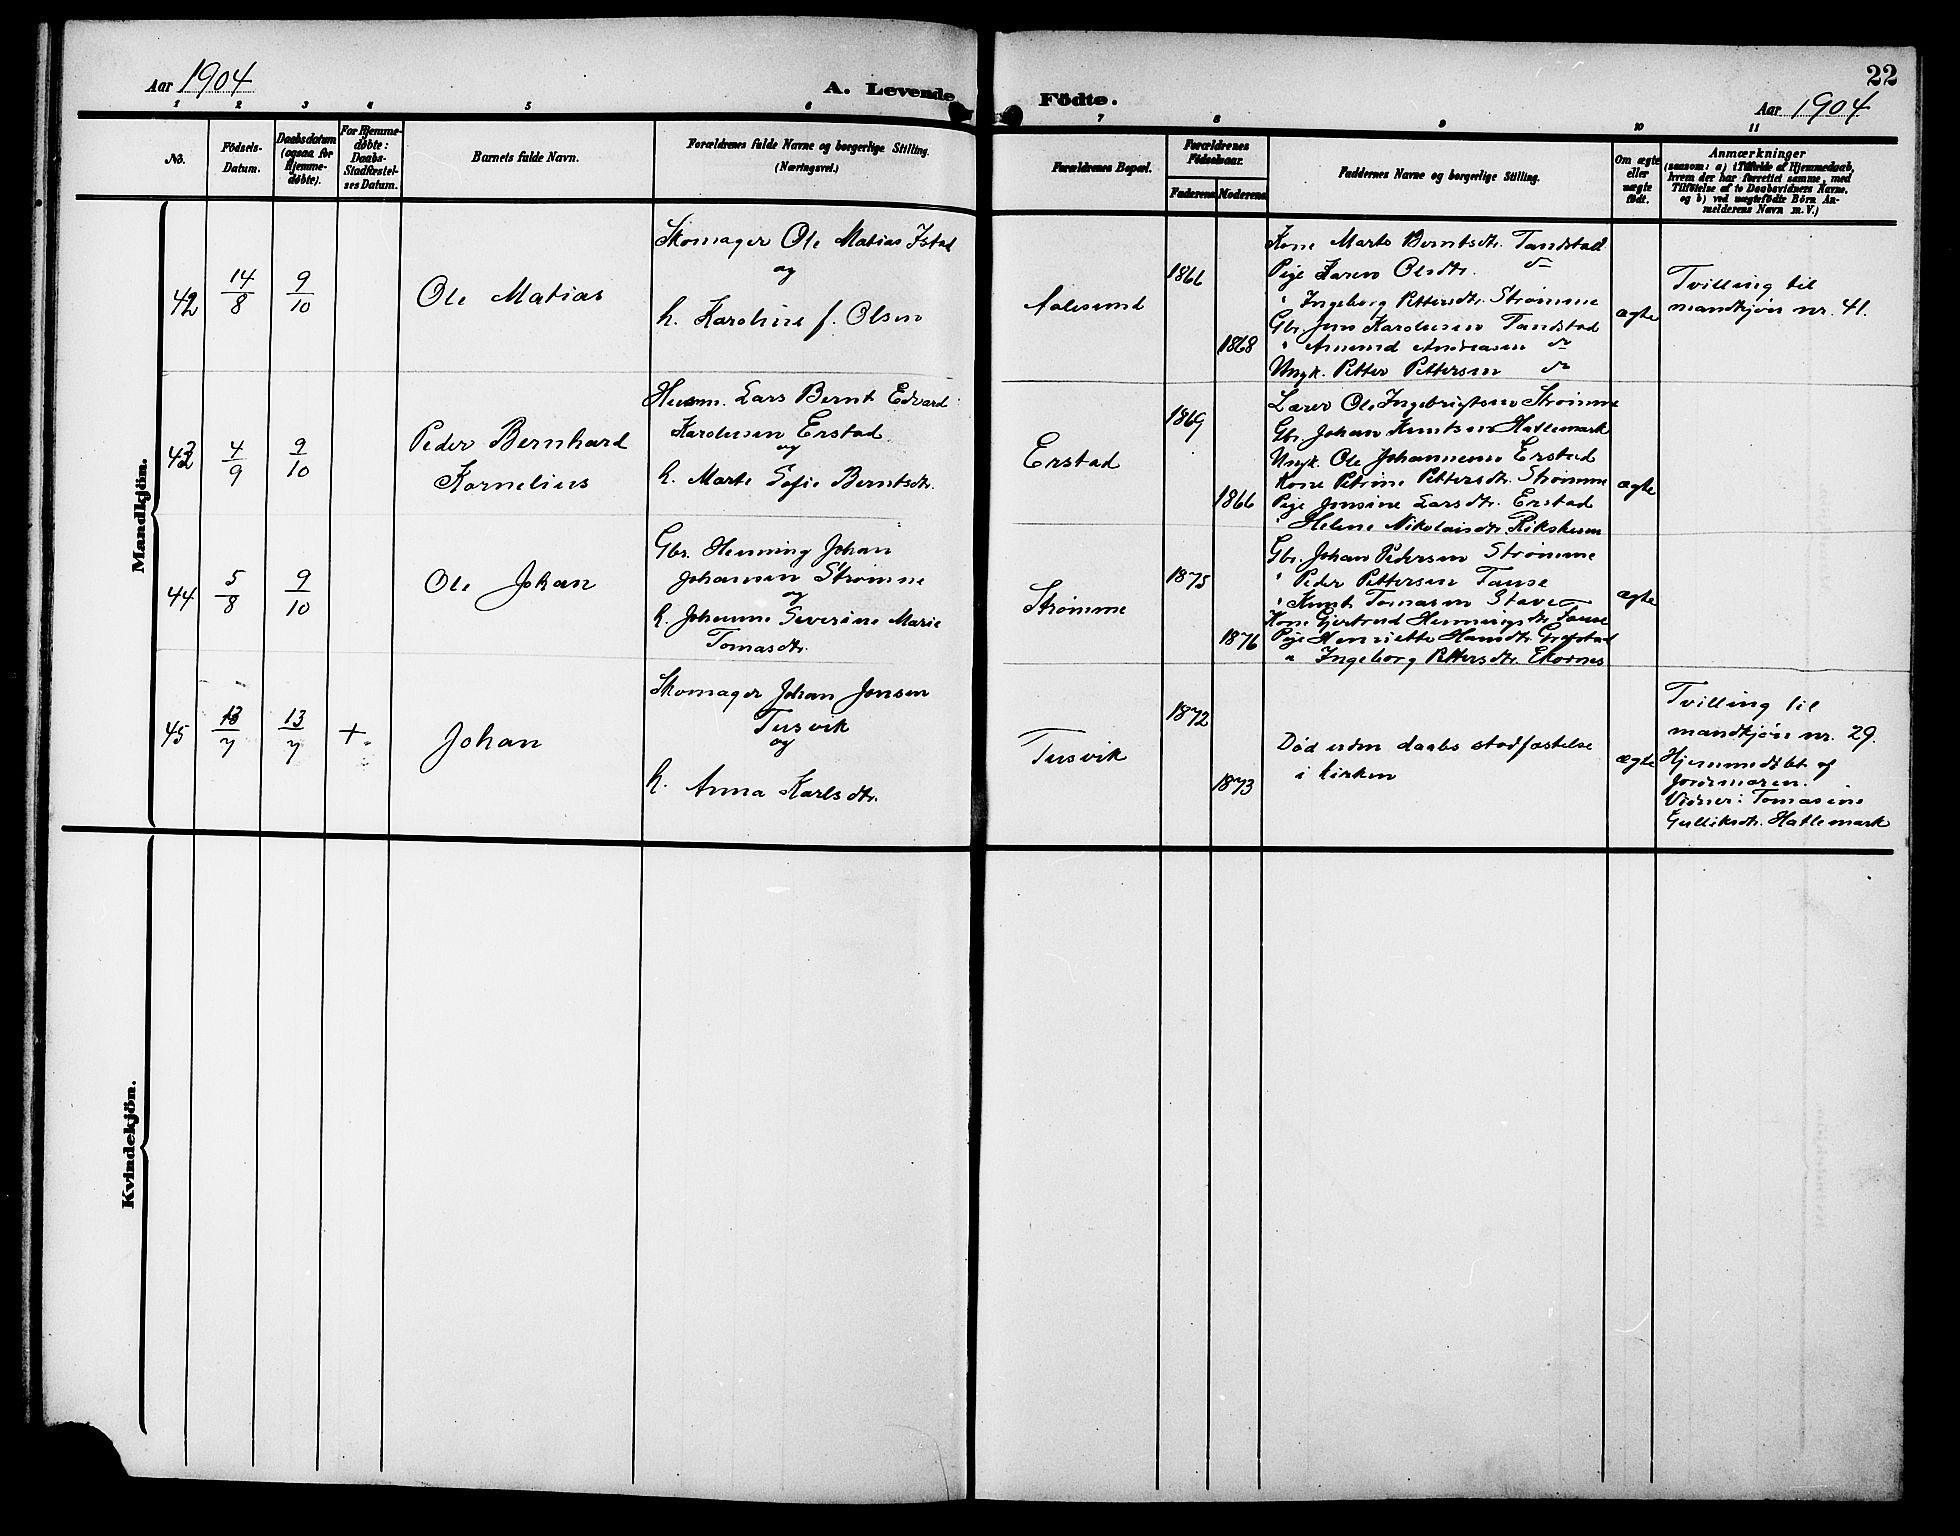 Aar 1904
A. Levende
Födte.
22
Aar 1904
1 2 3 4 5 6 7 8 9 10 11
No.
Födsels-
Datum.
Daabsdatum
(ogsaa for
Hjemme-
døbte).
For Hjemme-
døbte:
Daabs-
Stadfæstel-
ses Datum.
Barnets fulde Navn.
Forældrenes fulde Navne og borgerlige Stilling.
(Næringsvei.)
Forældrenes Bopæl.
Forældrenes
Födselsaar.
Faderens
Moderens
Faddernes Navne og borgerlige Stilling.
Om ægte
eller
uægte
født.
Anmærkninger
(saasom: a) i Tilfælde af Hjemmedaab,
hvem der har forrettet samme, med
Tilföielse af to Daabsvidners Navne,
og b) ved uægtefødte Börn An-
melderens Navn m. V.)
Mandkjön.
42
14/8
9/10
Ole Matias
Skomager Ole Matias Istad
og
h. Karoline f. Olsen
Aalesund
1866
1868
Kone Marte Berntsdtr. Tandstad
Pige Karen Olsdtr. do
" Ingeborg Pettersdtr. Strømme
Gbr. Jens Karolusen Tandstad
" Amund Andreasen do
Ungk. Petter Pettersen do
ægte
Tvilling til
mandkjøn nr. 41.
43
4/9
9/10
Peder Bernhard
Kornelius
Husm. Lars Bernt Edvard
Karolusen Erstad
og
h. Marte Sofie Berntsdtr.
Erstad
1869
1866
Lærer Ole Ingebrigtsen Strømme
Gbr. Johan Knutsen Hatlemark
Ungk. Ole Johannesen Erstad
Kone Petrine Pettersdtr. Strømme
Pige Jensine Larsdtr. Erstad
" Helene Nikolaisdtr. Riksheim
ægte
44
5/8
9/10
Ole Johan
Gbr. Henning Johan
Johansen Strømme
og
h. Johanne Severine Marie
Tomasdtr.
Strømme
1875
1876
Gbr. Johan Pedersen Strømme
" Peder Pettersen Tause
" Knut Tomasen Stave
Kone Gjertrud Henningsdtr. Tause
Pige Henriette Hansdtr.
" Ingeborg Pettersdtr. Ekornes
ægte
45
13/7
13/7
+
Johan
Skomager Johan Jonsen
Tusvik
og
h. Anna Karlsdtr.
Tusvik
1872
1873
Død uden daabs stadfæstelse
i kirken
ægte
Tvilling til
mandkjøn nr. 29.
Hjemmedøbt af
Jordmoren.
Vidner: Tomasine
Gulliksdtr. Hatlemark
Kvindekjön.